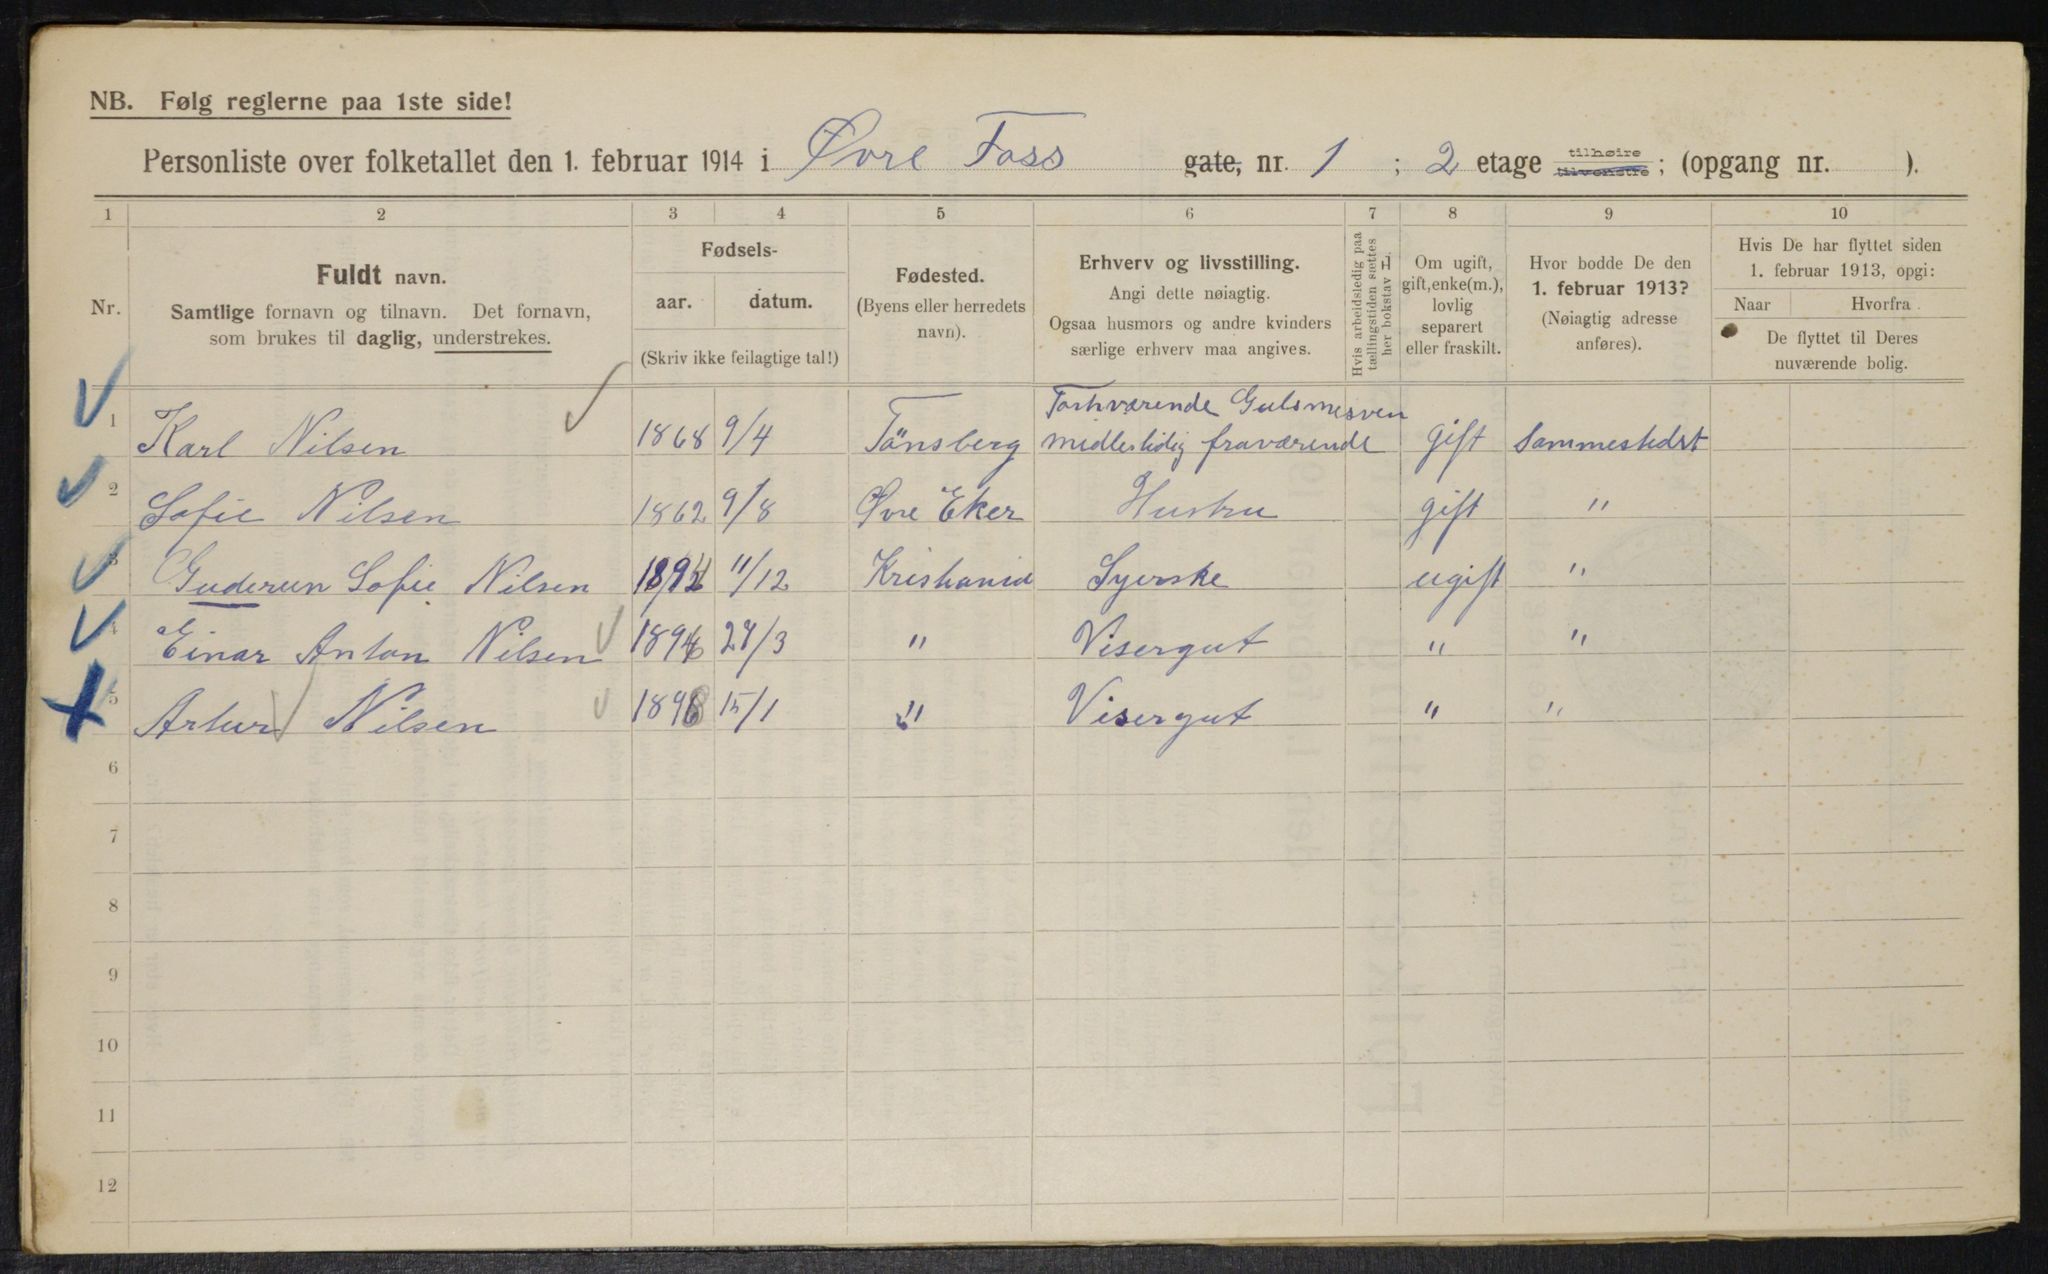 NB. Følg reglerne paa 1ste side!
Personliste over folketallet den 1. februar 1914 i Øvre Foss gate, nr. 1 ; 2 etage tilhøire tilvenstre ; (opgang nr. ).
1 2 3 4 5 6 7 8 9 10
Nr.
Fuldt navn.
Samtlige fornavn og tilnavn. Det fornavn,
som brukes til daglig, understrekes.
Fødsels-
aar. datum.
(Skriv ikke feilagtige tal!)
Fødested.
(Byens eller herredets
navn).
Erhverv og livsstilling.
Angi dette nøiagtig.
Ogsaa husmors og andre kvinders
særlige erhverv maa angives.
Hvis arbeidsledig paa
tællingstiden sættes
her bokstav L
Om ugift,
gift, enke(m.),
lovlig
separert
eller fraskilt.
Hvor bodde De den
1. februar 1913?
(Nøiagtig adresse
anføres).
Hvis De har flyttet siden
1. februar 1913, opgi:
Naar Hvorfra
De flyttet til Deres
nuværende bolig.
1 Karl Nilsen 1868 9/4 Tönsberg midlertidig fraværende gift Sammestedst
2 Sofie Nilsen 1862 9/8 Øvre Eker Hustru gift "
3 Guderun Sofie Nilsen 11/12 Kristiania Syerske ugift "
4 Einar Anton Nilsen " Visergut " "
5 Artur Nilsen 15/1 " Visergut " "
6
7
8
9
10
11
12